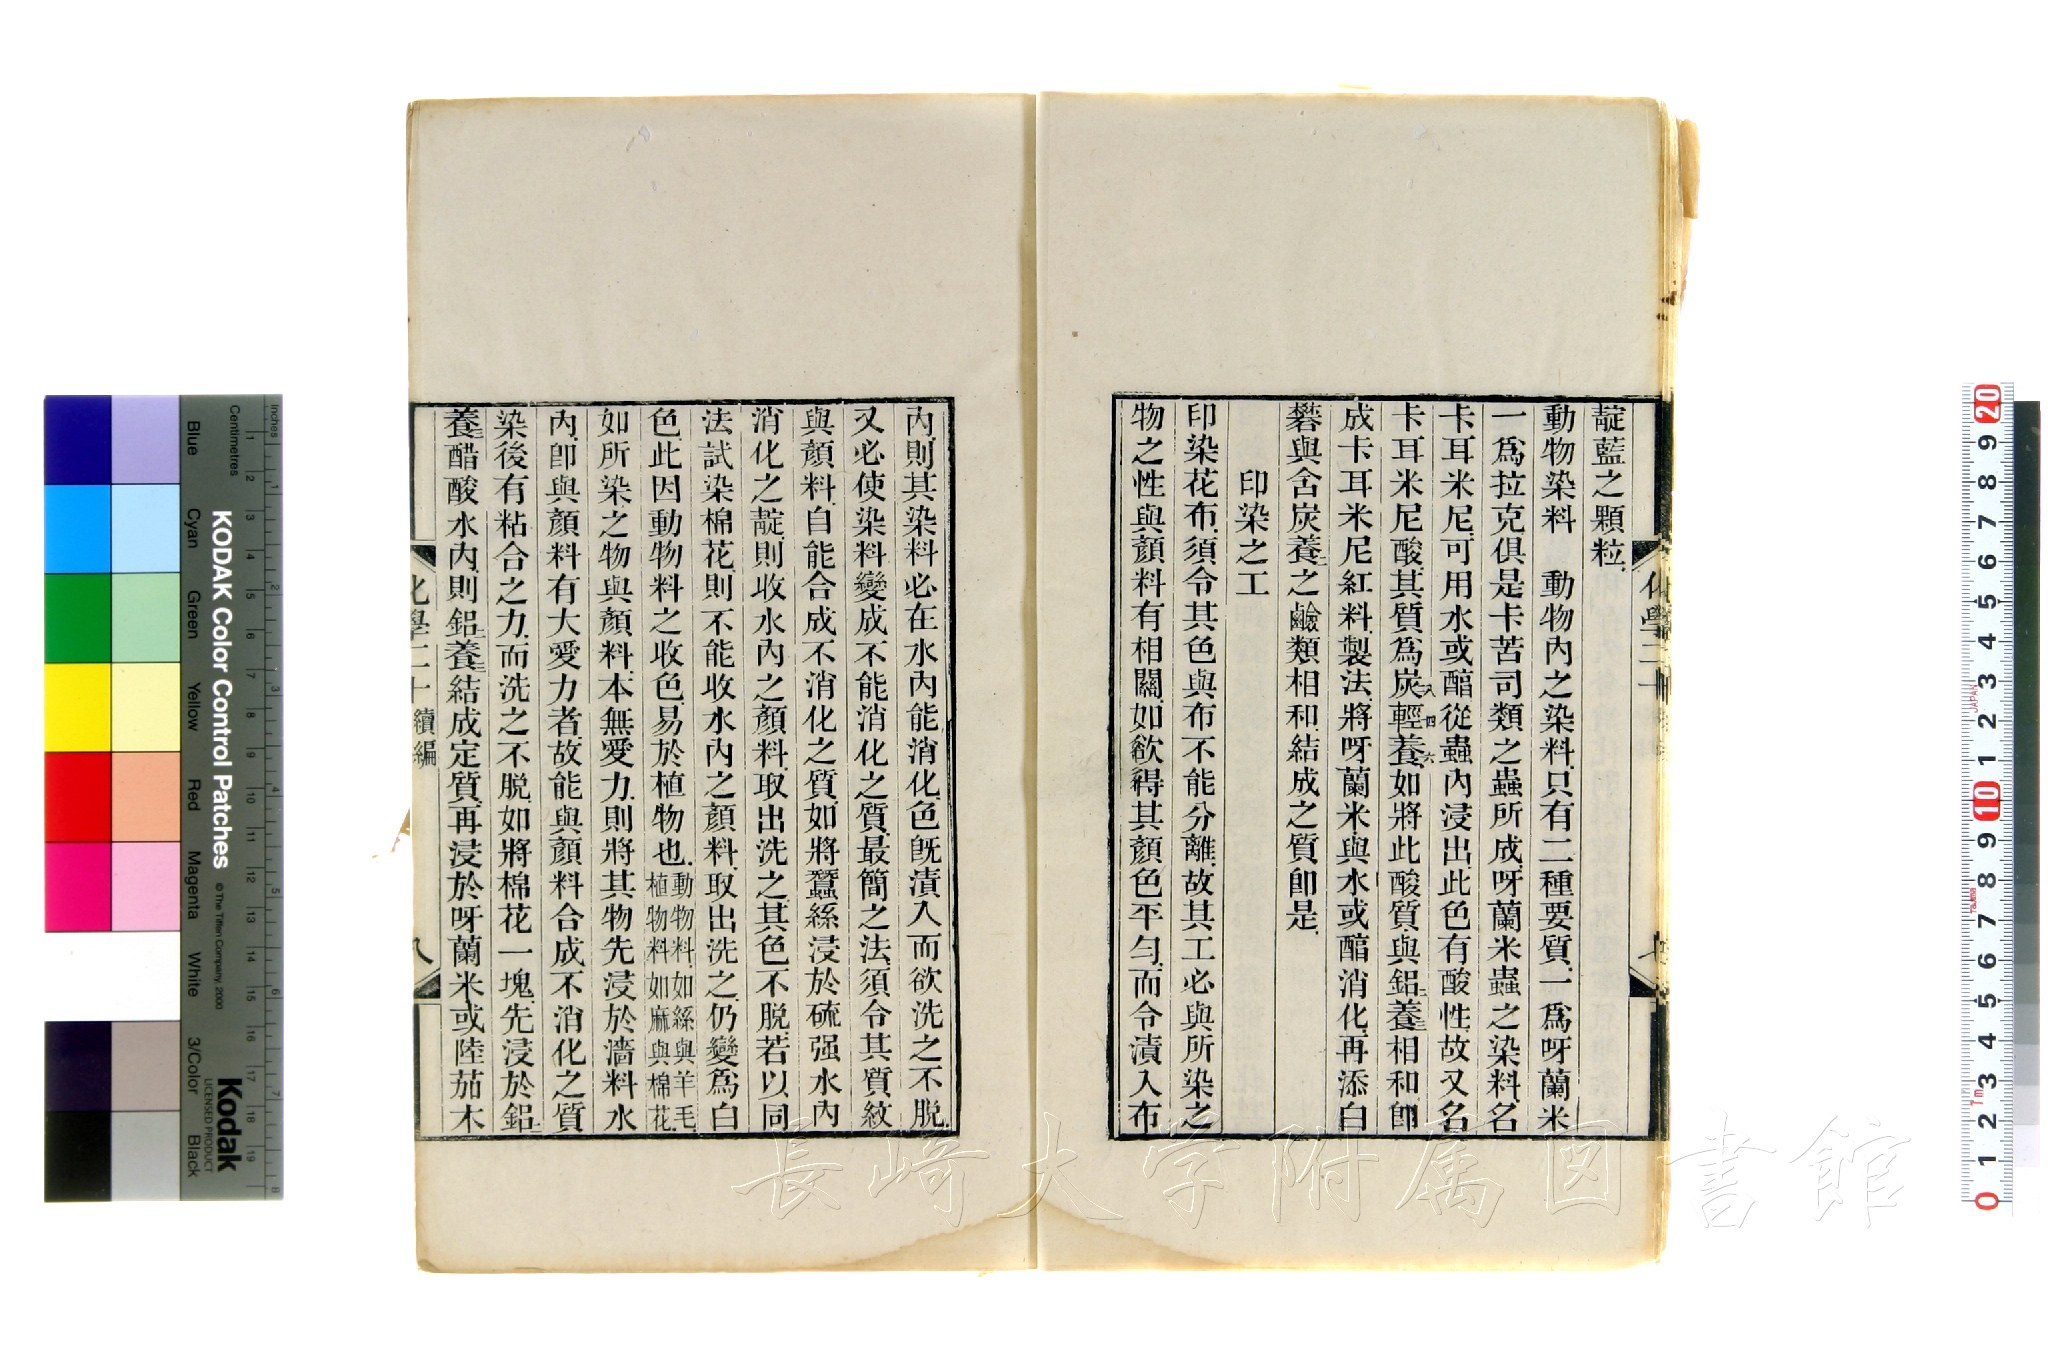 靛藍之顆粒
動物染料　動物內之染料只有二種要質一爲呀蘭米
一爲拉克俱是卡苦司類之蟲所成呀蘭米蟲之染料名
卡耳米尼可用水或醕從蟲內浸出此色有酸性故又名
卡耳米尼酸其質爲炭輕養如將此酸質與鋁養相和卽
成卡耳米尼紅料製法將呀蘭米與水或醕消化再添白
礬與含炭養之鹼類相和結成之質卽是
印染之工
印染花布須令其色與布不能分離故其工必與所染之
物之性與顏料有相關如欲得其顏色平勻而令漬入布
內則其染料必在水內能消化色旣漬入而欲洗之不脫
又必使染料變成不能消化之質最簡之法須令其質紋
與顏料自能合成不消化之質如將蠶絲浸於硫强水內
消化之靛則收水內之顏料取出洗之其色不脫若以同
法試染棉花則不能收水內之顏料取出洗之仍變爲白
色此因動物料之收色易於植物也動物料如絲與羊毛植物料如麻與棉花
如所染之物與顏料本無愛力則將其物先浸於濇料水
內卽與顏料有大愛力者故能與顏料合成不消化之質
染後有粘合之力而洗之不脫如將棉花一塊先浸於鋁
養醋酸水內則鋁養結成定質再浸於呀蘭米或陸茄木
化學二十 續編 八
長崎大学附属図書館
KODAK Color Control Patches
© The Tiffen Company, 2000
Kodak
LICENSED PRODUCT
Inches
Centimetres
Blue
Cyan
Green
Yellow
Red
Magenta
White
3/Color
Black
JAPAN